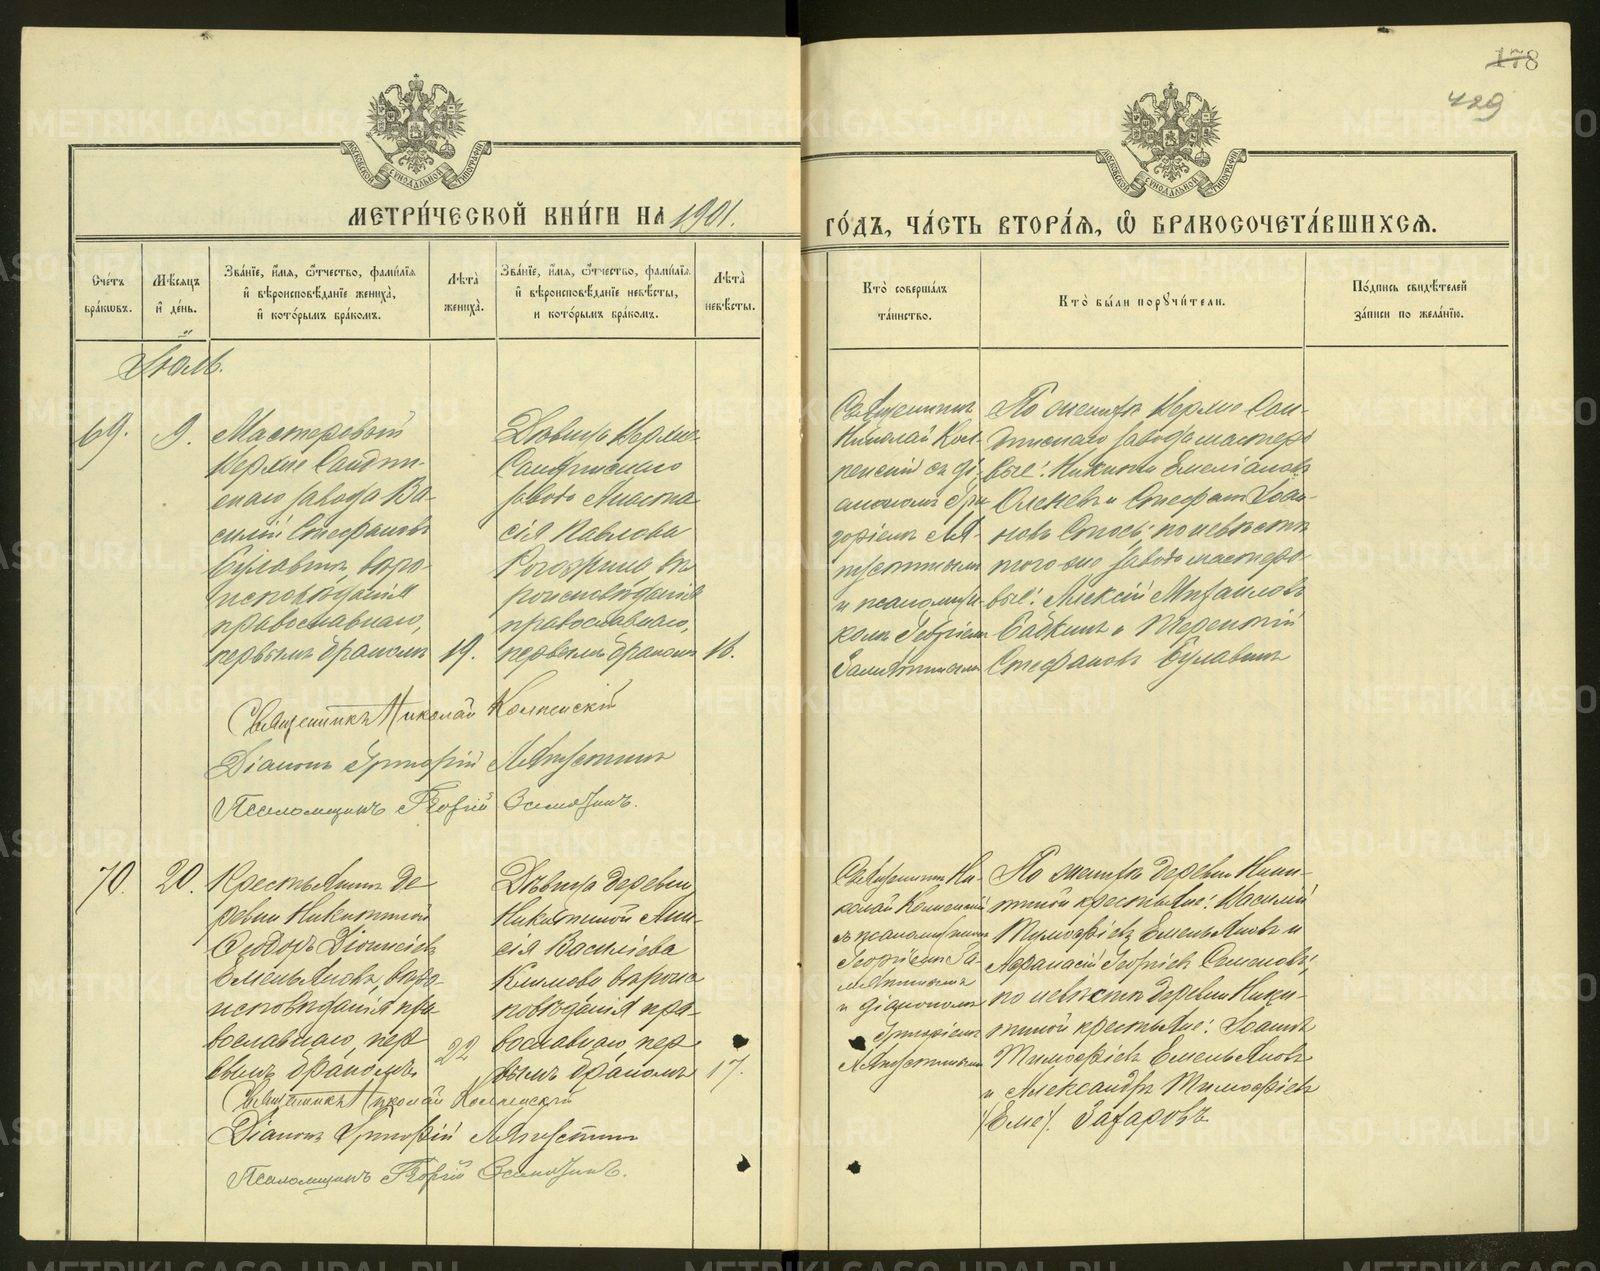 178
429
МЕТРИ́ЧЕСКОЙ КНИ́ГИ НА 1901.
ГО́ДЪ, ЧА́СТЬ ВТОРА́Я, Ѽ БРАКОСОЧЕТА́ВШИХСЯ.
Сче́тъ бра́кѡвъ.
Мѣ́сяцъ и҆ де́нь.
Зва́нїе, и҆́мя, ѻ҆́тчество, фами́лїя и҆ вѣроисповѣ́данїе жениха̀, и҆ кото́рымъ бра́комъ.
Лѣта̀ жениха̀.
Зва́нїе, и҆́мя, ѻ҆́тчество, фами́лїя и҆ вѣроисповѣ́данїе невѣ́сты, и кото́рымъ бра́комъ.
Лѣта̀ невѣ́сты.
Кто̀ соверша́лъ та́инство.
Кто̀ бы́ли порꙋчи́тели.
По́дпись свидѣ́телей за́писи по жела́нїю.
Іюль.
69.
9.
Мастеровой
Верхне Салдин-
скаго завода Ва-
силій Стефановъ
Булавинъ, вѣро-
исповѣданія
православнаго,
первымъ бракомъ
19.
Дѣвица Верхне-
Салдинскаго
завода Анаста
сія Павлова
вѣ
роисповѣданія
православнаго,
первымъ бракомъ
18.
Священникъ
Николай
съ ді-
акономъ Гри
горіемъ
и псаломщи-
комъ Георгіемъ
По женихѣ Верхне Сал-
динскаго завода мастеро
вые: Никита Емеліановъ
и Стефанъ Іоан-
новъ по невѣстѣ
того же завода мастеро-
вые: Алексій Михаиловъ
и
Стефановъ Булавинъ
Священникъ Николай
Діаконъ Григорій
Псаломщикъ Георгій
70.
20.
Крестьянинъ де
ревни Никитиной
Ѳеодоръ Діонисіевъ
Емельяновъ, вѣро-
исповѣданія пра
вославнаго, пер
вымъ бракомъ.
22
Дѣвица деревни
Никитиной Ани-
сія Василіева
Климова вѣроис
повѣданія пра-
вославнаго, пер
вымъ бракомъ
17.
Священникъ Ни-
колай
съ псаломщикомъ
Георгіемъ
и діакономъ
Григоріемъ
По женихѣ деревни Ники-
тиной крестьяне: Василій
Тимофіевъ Емельяновъ и
Аѳанасій Георгіевъ Семеновъ,
по невѣстѣ деревни Ники-
тиной крестьяне: Іоаннъ
Тимофіевъ Емельяновъ
и Александръ Тимофіевъ
/Еме/. Захаровъ
Священникъ Николай
Діаконъ Григорій
Псаломщикъ Георгій
METRIKI.GASO-URAL.RU